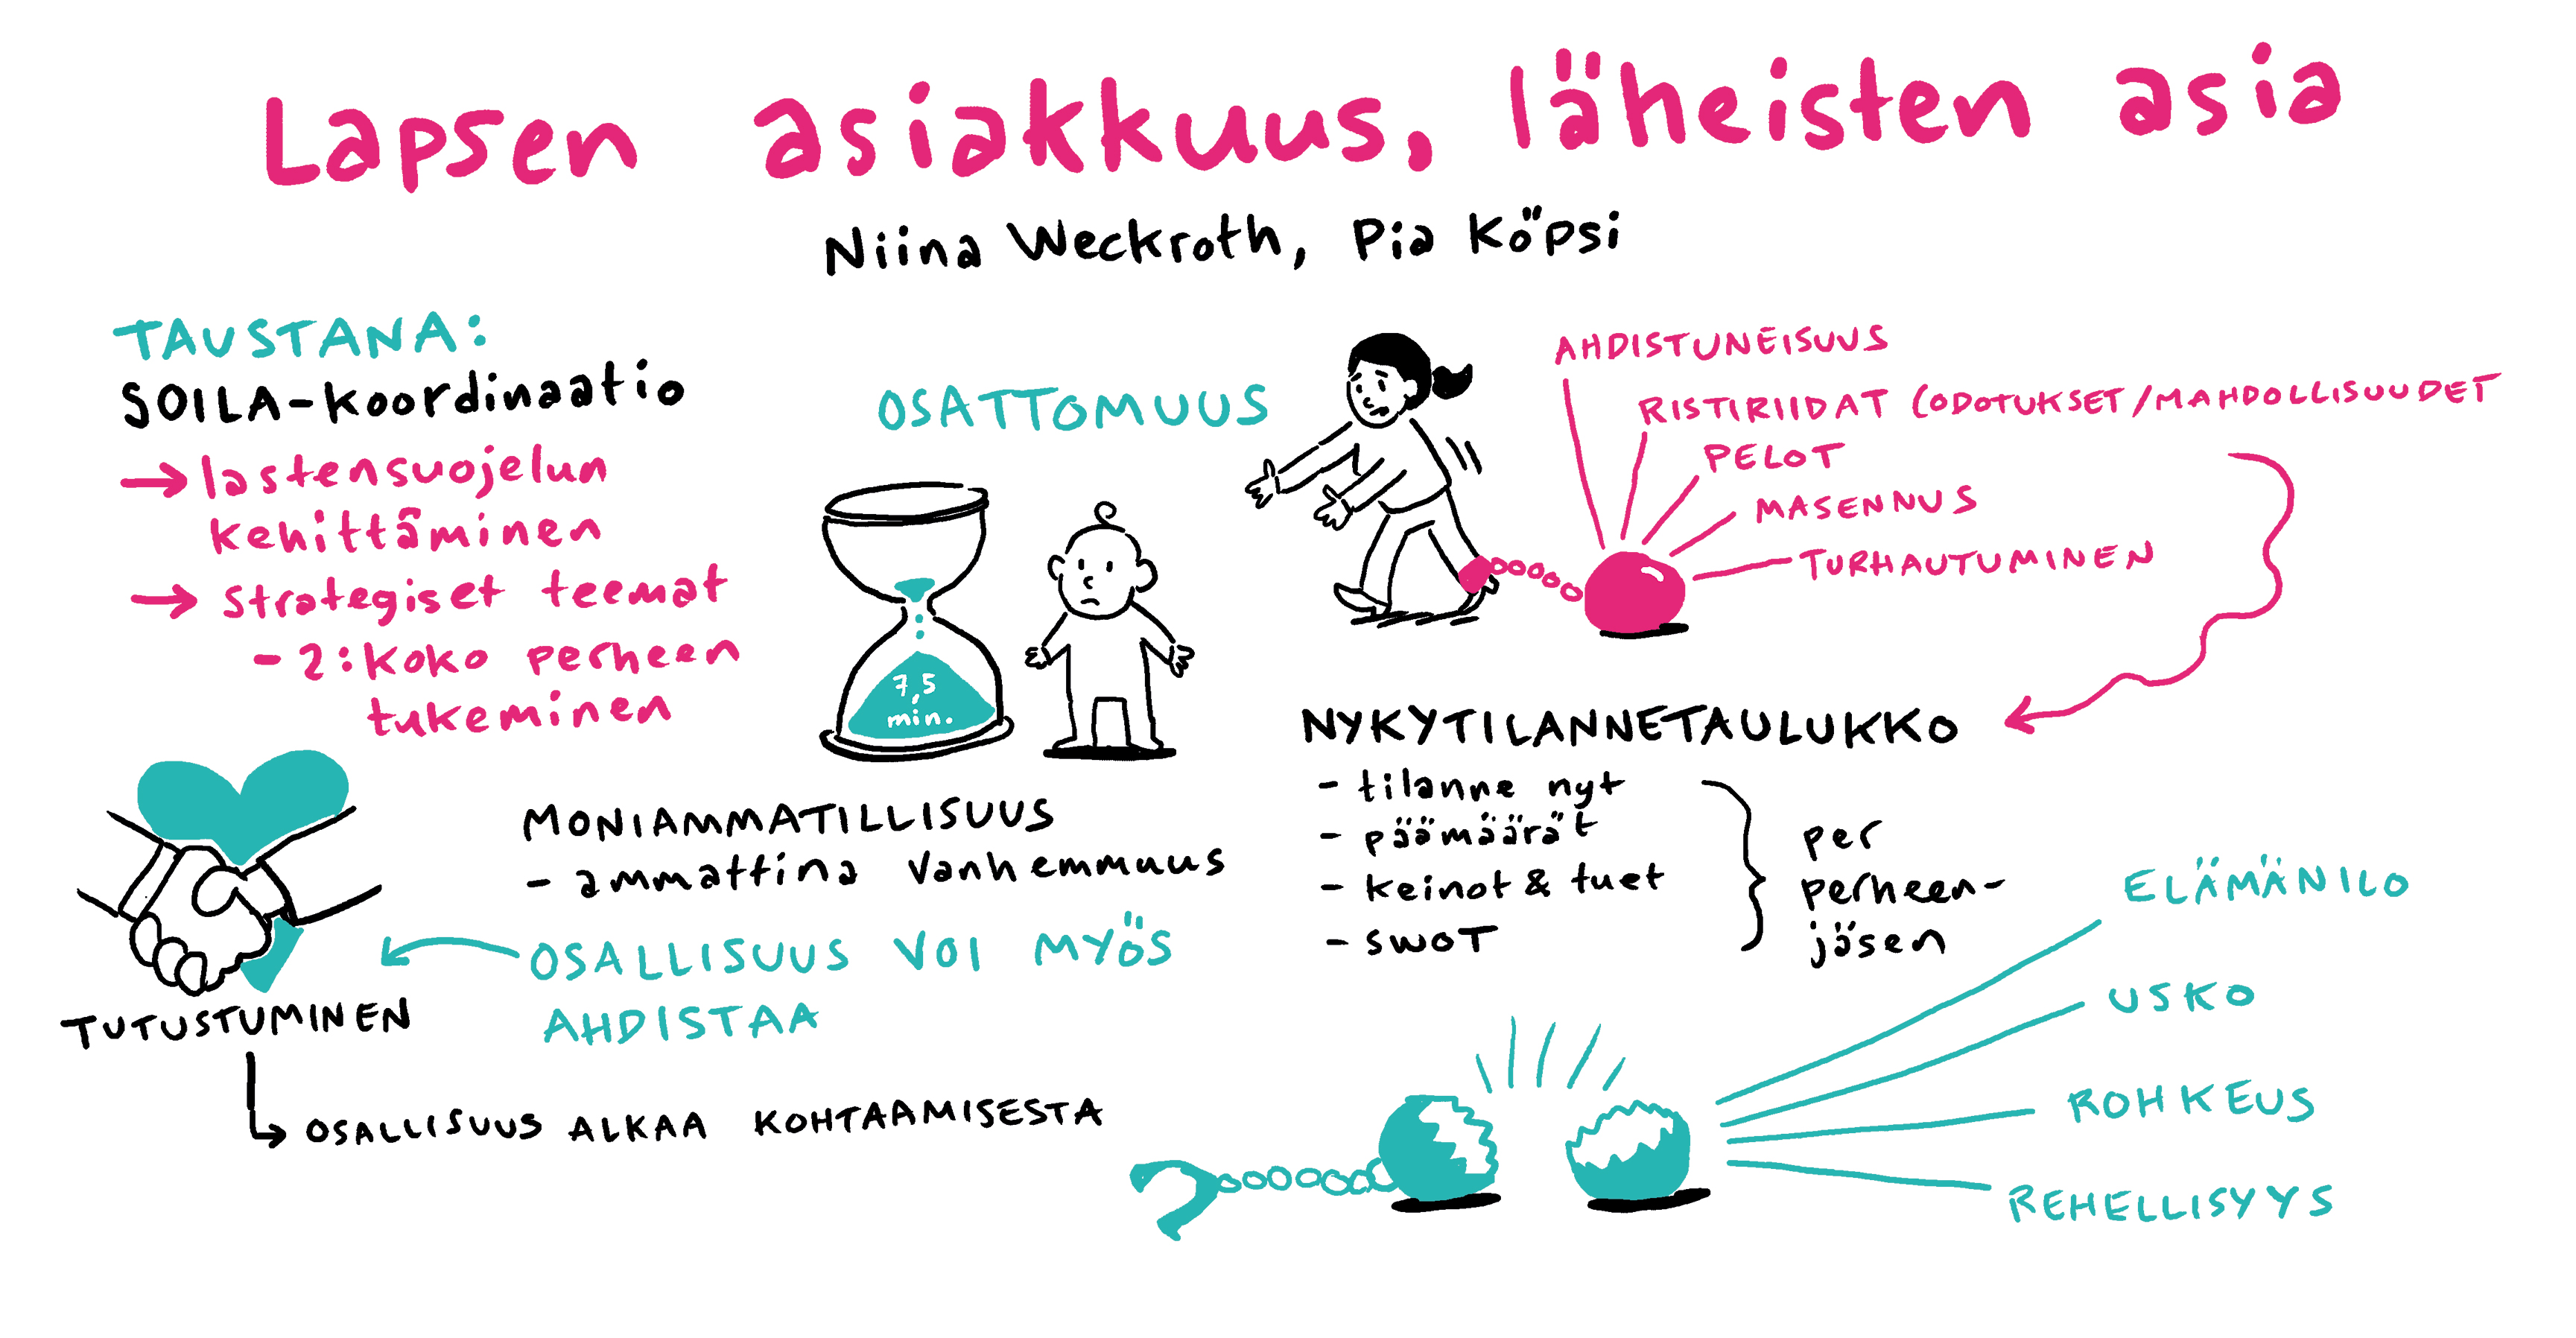 Lapsen asiakkuus, läheisten asia
Niina Weckroth, Pia Köpsi
TAUSTANA:
SOILA-koordinaatio
→ lastensuojelun
kehittäminen
→ strategiset teemat
- 2: koko perheen
tukeminen
OSATTOMUUS
7,5
min.
AHDISTUNEISUUS
RISTIRIIDAT (ODOTUKSET/MAHDOLLISUUDET
PELOT
MASENNUS
TURHAUTUMINEN
TUTUSTUMINEN
OSALLISUUS ALKAA KOHTAAMISESTA
MONIAMMATILLISUUS
- ammattina vanhemmuus
OSALLISUUS VOI MYÖS
AHDISTAA
NYKYTILANNETAULUKKO
- tilanne nyt
- päämäärät
- keinot & tuet
- SWOT
per
perheen-
jäsen
ELÄMÄNILO
USKO
ROHKEUS
REHELLISYYS